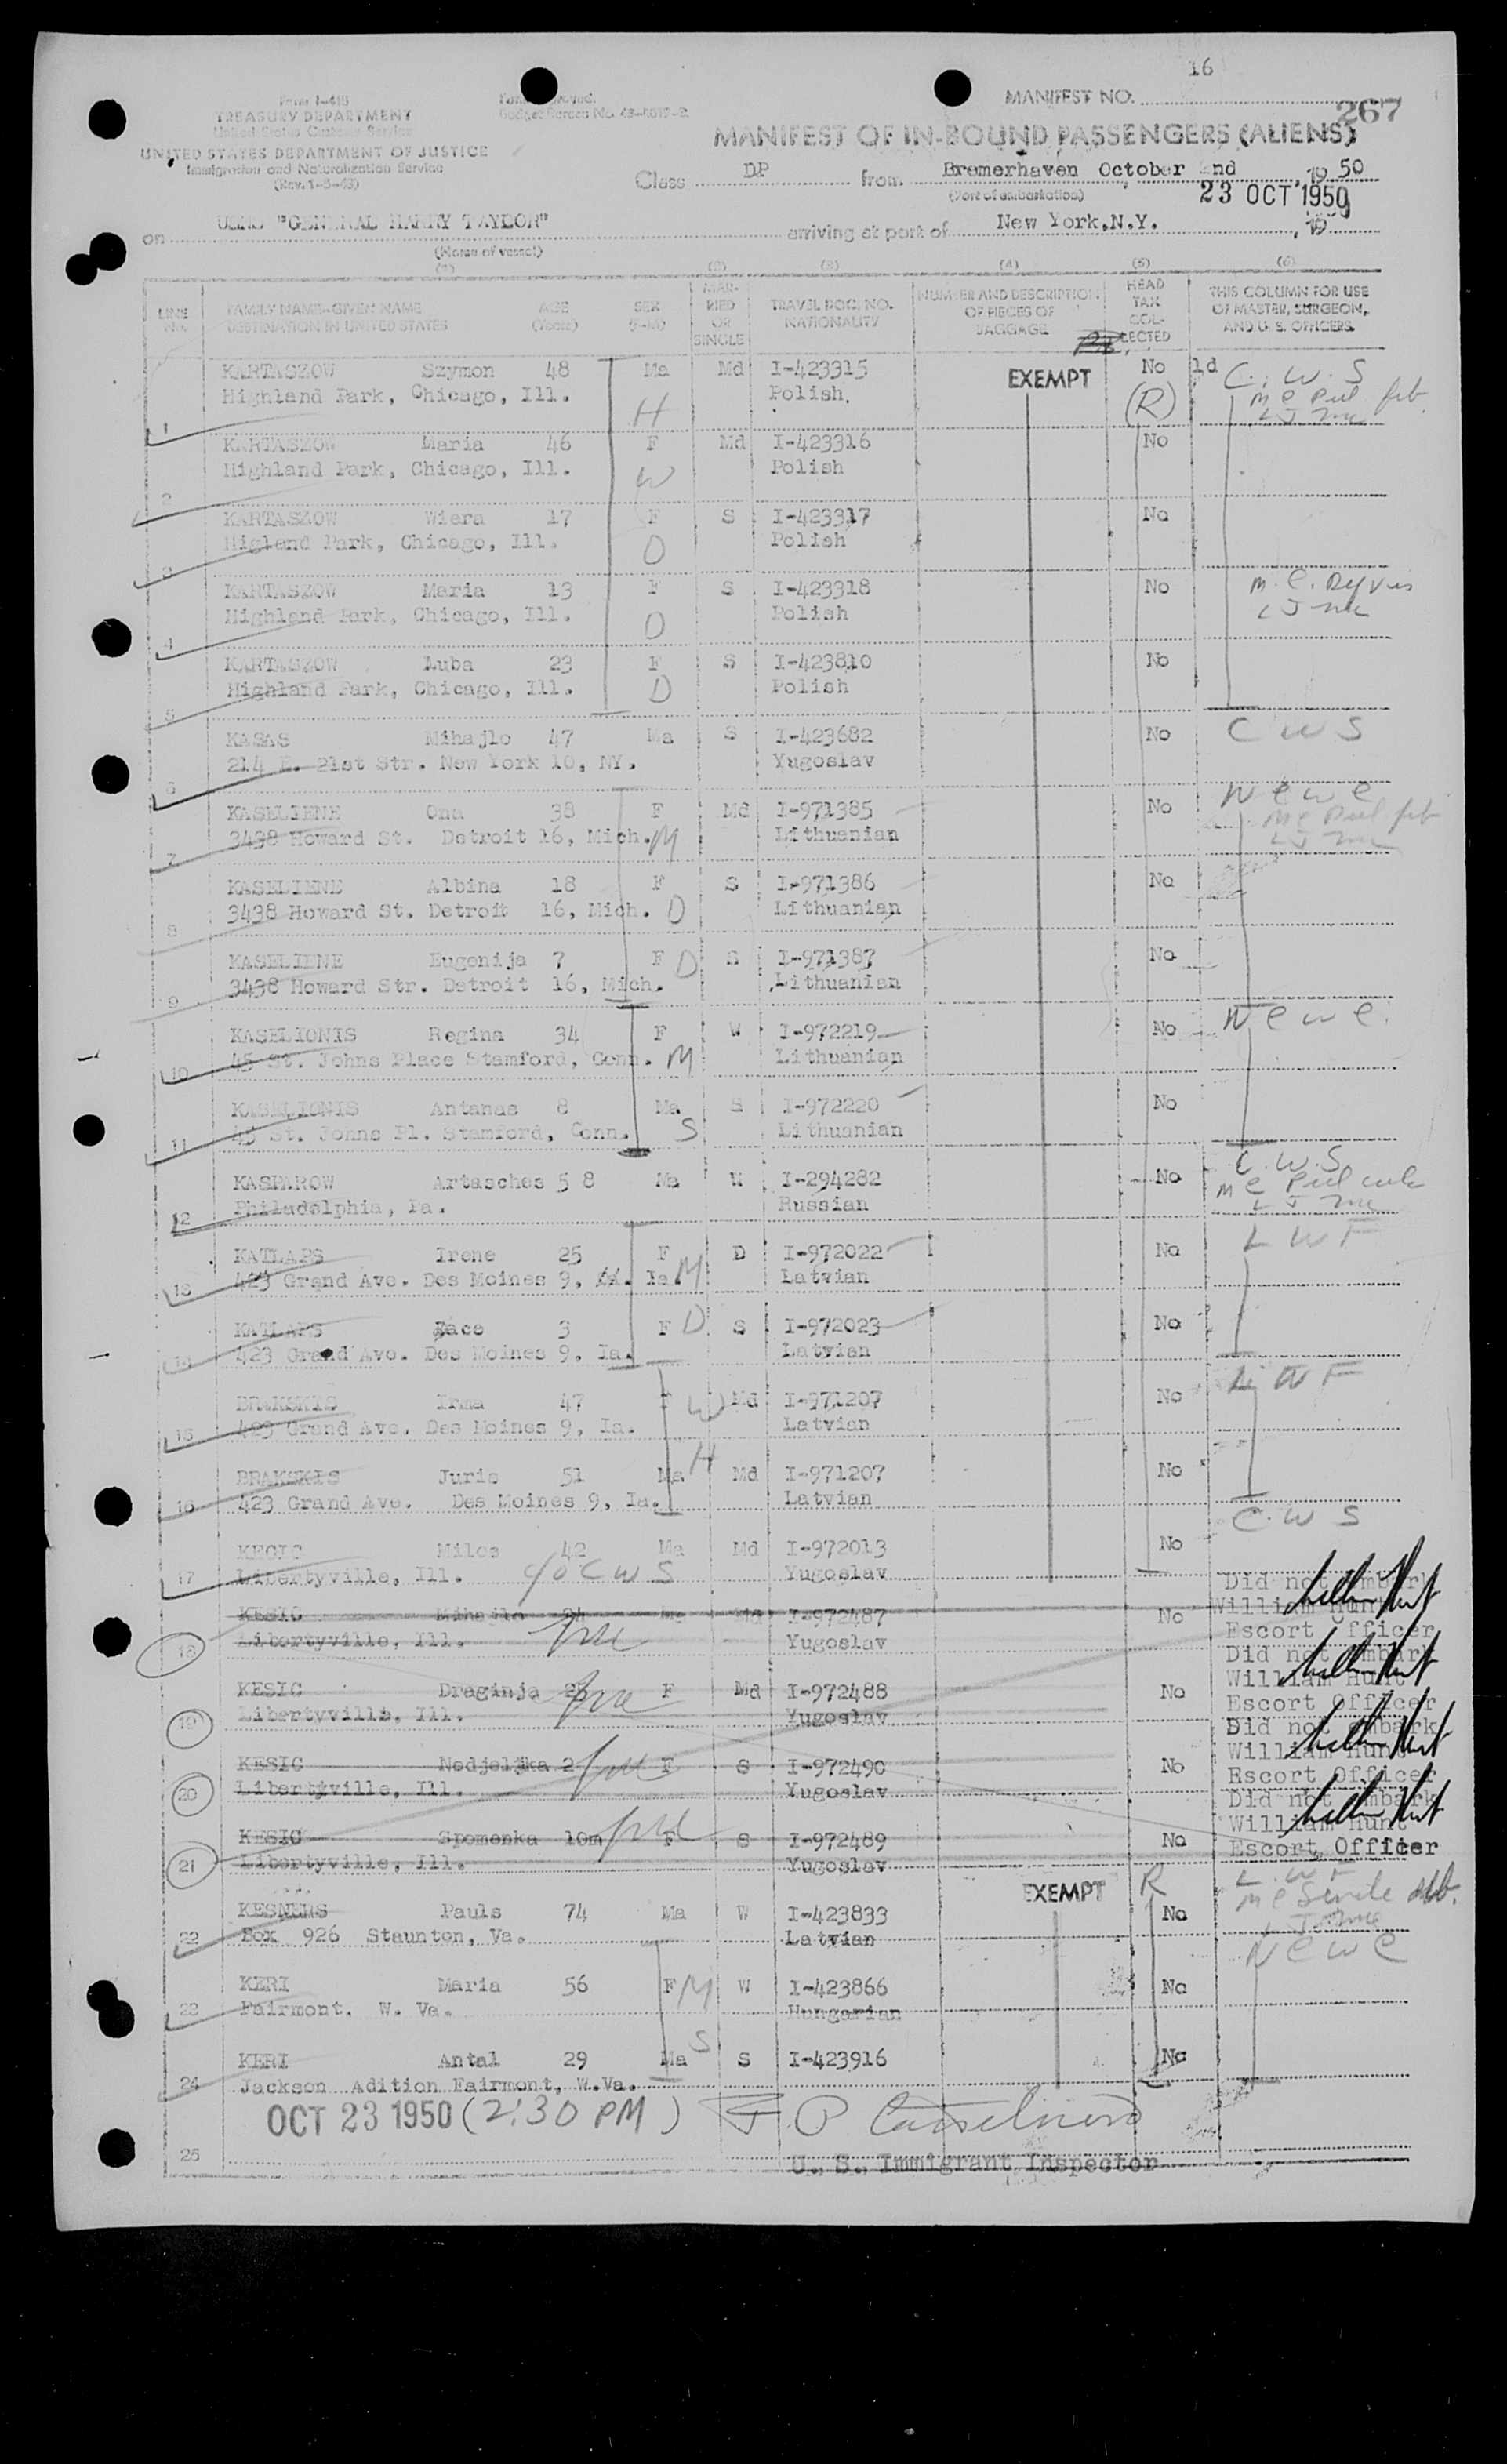 16
Form I-415
TREASURY DEPARTMENT
United States Customs Service
UNITED STATES DEPARTMENT OF JUSTICE
Immigration and Naturalization Service
Budget Bureau No.
MANIFEST NO.
267
MANIFEST OF IN-BOUND PASSENGERS (ALIENS)
Class DP from Bremerhaven October 2nd, 19 50
(Port of embarkation)
23 OCT 1950
on USNS "GENERAL HARRY TAYLOR" arriving at port of New York,N.Y. , 19
(Name of vessel)
(1) (2) (3) (4) (5) (6)
LINE No. FAMILY NAME-GIVEN NAME DESTINATION IN UNITED STATES AGE (Years) SEX (F-M) MARRIED OR SINGLE TRAVEL DOC. NO. NATIONALITY NUMBER AND DESCRIPTION OF PIECES OF BAGGAGE HEAD TAX COLLECTED THIS COLUMN FOR USE OF MASTER, SURGEON, AND U. S. OFFICERS
KARTASZOW Szymon 48 Ma Md I-423315 EXEMPT No ld C.W.S
1 Highland Park, Chicago, Ill. H Polish. (R)
KARTASZOW Maria 46 F Md I-423316 No
2 Highland Park, Chicago, Ill. W Polish
KARTASZOW Wiera 17 F S I-423317 No
3 Higland Park, Chicago, Ill. D Polish
KARTASZOW Maria 13 F S I-423318 No
4 Highland Park, Chicago, Ill. D Polish
KARTASZOW Luba 23 F S I-423810 No
5 Highland Park, Chicago, Ill. D Polish
KASAS Mihajlo 47 Ma S I-423682 No C W S
6 214 E. 21st Str. New York 10, NY. Yugoslav
KASELIENE Ona 38 F Md I-971385 No N C W C
7 3438 Howard St. Detroit 16, Mich. M Lithuanian
KASELIENE Albina 18 F S I-971386 No
8 3438 Howard St. Detroit 16, Mich. D Lithuanian
KASELIENE Eugenija 7 F D S I-971387 No
9 3438 Howard Str. Detroit 16, Mich. Lithuanian
KASELIONIS Regina 34 F W I-972219 No N C W C
10 45 St. Johns Place Stamford, Conn. M Lithuanian
KASELIONIS Antanas 8 Ma S I-972220 No
11 45 St. Johns Pl. Stamford, Conn. S Lithuanian
KASPAROW Artasches 58 Ma W I-294282 No C.W.S
12 Philadelphia, Pa. Russian
KATLAPS Irene 25 F D I-972022 No L W F
13 423 Grand Ave. Des Moines 9, Ia. M Latvian
KATLAPS Zace 3 F D S I-972023 No
14 423 Grand Ave. Des Moines 9, Ia. Latvian
BRAKSKIS Irma 47 F W Md I-971207 No L W F
15 423 Grand Ave. Des Moines 9, Ia. Latvian
BRAKSKIS Juris 51 Ma H Md I-971207 No
16 423 Grand Ave. Des Moines 9, Ia. Latvian
KECIC Milos 42 Ma Md I-972013 No C.W S
17 Libertyville, Ill. c/o C W S Yugoslav
KESIC Mihajlo 24 Ma Md I-972487 No Did not embark William Hunt
18 Libertyville, Ill. Yugoslav Escort Officer
KESIC Draginja F Md I-972488 No Did not embark William Hunt
19 Libertyville, Ill. Yugoslav Escort Officer
KESIC Nedjeljka 2 F S I-972490 No Did not embark William Hunt
20 Libertyville, Ill. Yugoslav Escort Officer
KESIC Spomenka 10m F S I-972489 No Did not embark William Hunt
21 Libertyville, Ill. Yugoslav Escort Officer
KESNEMS Pauls 74 Ma W I-423833 EXEMPT R No L.W F
22 Box 926 Staunton, Va. Latvian
KERI Maria 56 F M W I-423866 No N C W C
23 Fairmont. W. Va. Hungarian
KERI Antal 29 Ma S S I-423916 No
24 Jackson Adition Fairmont, W.Va.
OCT 23 1950 (2:30 PM)
25 U. S. Immigrant Inspector